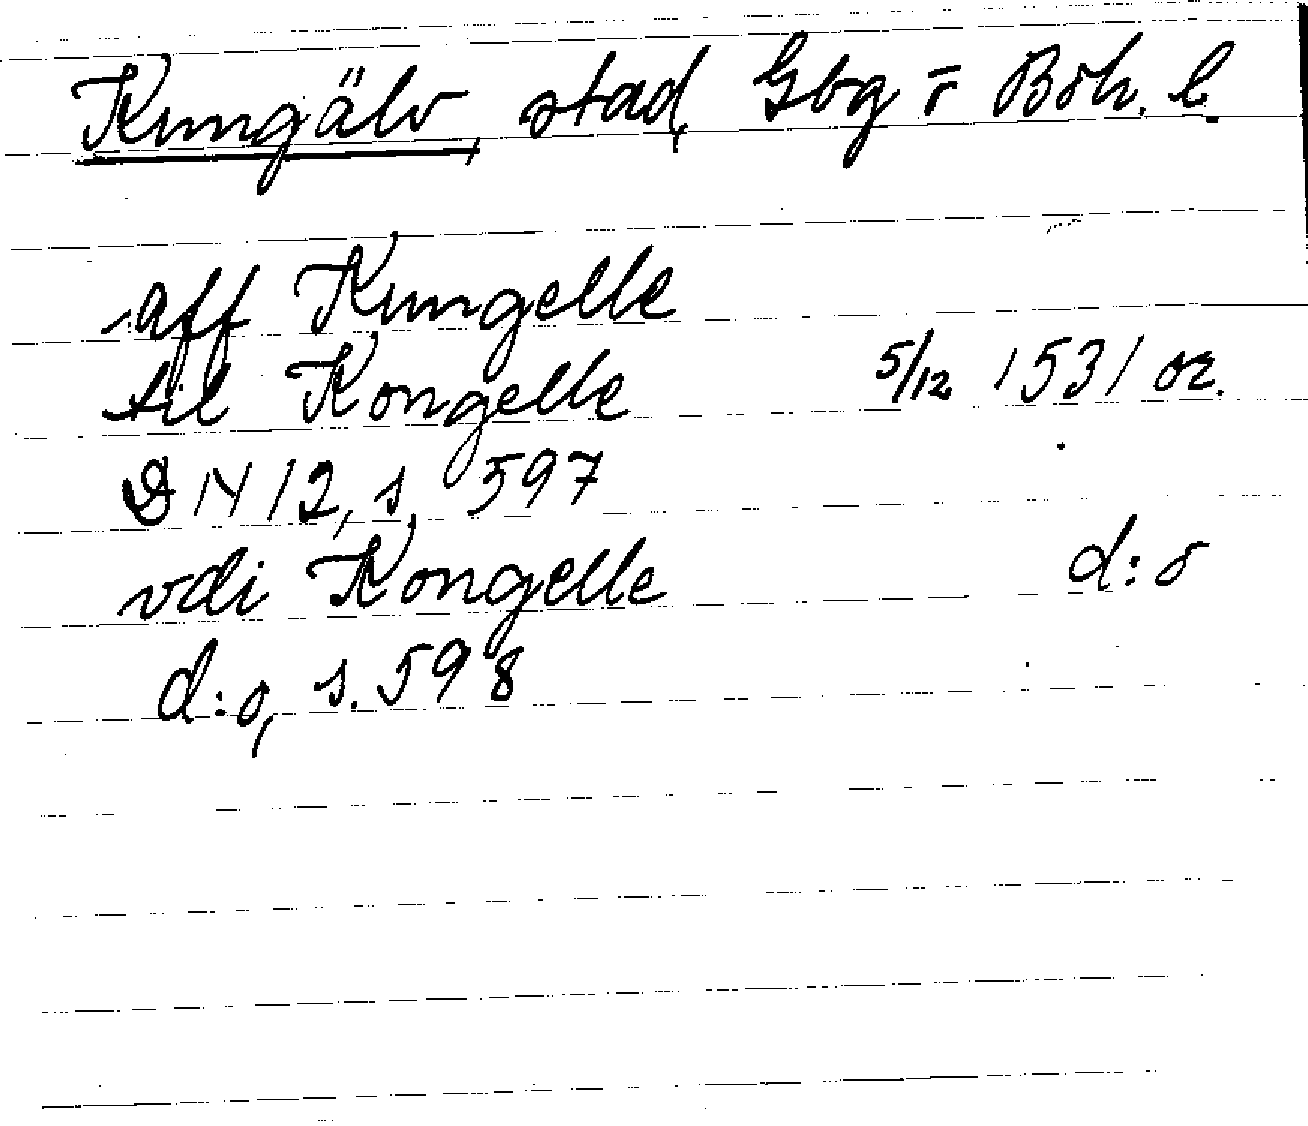 Kungälv, stad, Gbg o Boh. l.
aff Kungelle
til Kongelle 5/12 1531 or.
DN 12, s. 597
vdi Kongelle d:o
d:o, s. 598